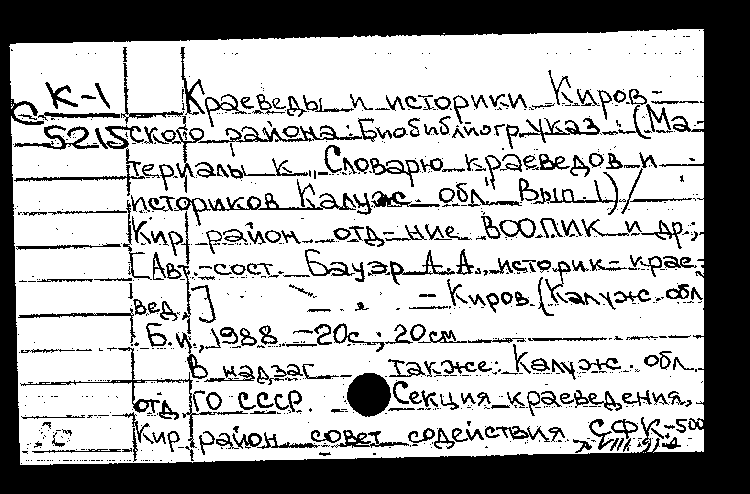 К-1 Краеведы и историки Киров-
5215 ского района: Биобиблиогр. указ.: (Ма-
териалы к „Словарю краеведов и
историков Калуж. обл" Вып. 1)/
Кир. район. отд-ние ВООПИК и др.;
[Авт.-сост. Бауэр А.А., историк-крае-
вед.] - Киров (Калуж. обл
Б.и., 1988 -20с; 20см
В надзаг также: Калуж. обл
отд. ГО СССР. Секция краеведения,
Кир район совет содействия СФК-500